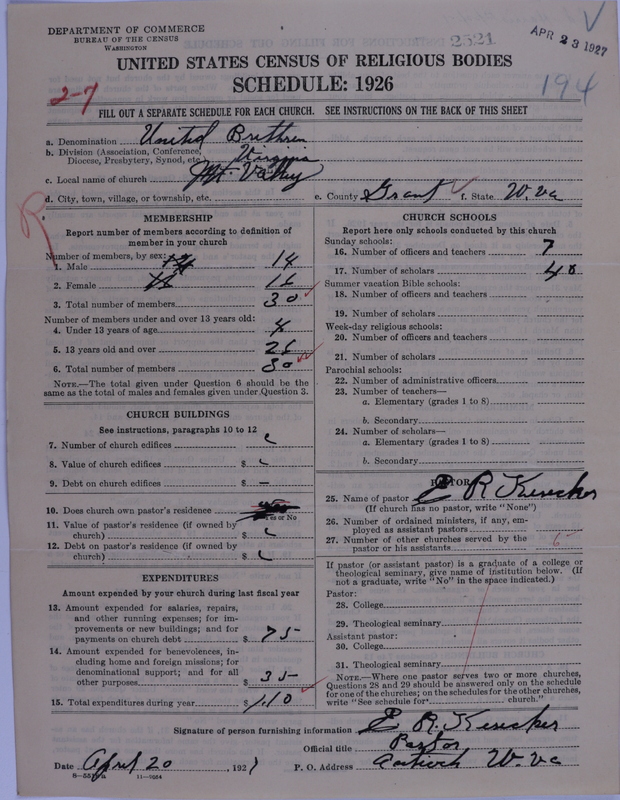 DEPARTMENT OF COMMERCE
BUREAU OF THE CENSUS
WASHINGTON
2521
APR 23 1927
UNITED STATES CENSUS OF RELIGIOUS BODIES
SCHEDULE: 1926
194
2-7
FILL OUT A SEPARATE SCHEDULE FOR EACH CHURCH. SEE INSTRUCTIONS ON THE BACK OF THIS SHEET
a. Denomination United Brethren
b. Division (Association, Conference, Diocese, Presbytery, Synod, etc. Virginia
c. Local name of church Mt. Valley
d. City, town, village, or township, etc. e. County Grant f. State W. va
R
MEMBERSHIP
Report number of members according to definition of
member in your church
Number of members, by sex:
1. Male 14
2. Female 16
3. Total number of members 30
Number of members under and over 13 years old:
4. Under 13 years of age 4
5. 13 years old and over 26
6. Total number of members 30
NOTE.—The total given under Question 6 should be the
same as the total of males and females given under Question 3.
CHURCH BUILDINGS
See instructions, paragraphs 10 to 12
7. Number of church edifices
8. Value of church edifices $
9. Debt on church edifices $ —
10. Does church own pastor's residence
Yes or No
11. Value of pastor's residence (if owned by
church) $
12. Debt on pastor's residence (if owned by
church) $
EXPENDITURES
Amount expended by your church during last fiscal year
13. Amount expended for salaries, repairs,
and other running expenses; for im-
provements or new buildings; and for
payments on church debt $ 75
14. Amount expended for benevolences, in-
cluding home and foreign missions; for
denominational support; and for all
other purposes $ 35
15. Total expenditures during year $ 110
CHURCH SCHOOLS
Report here only schools conducted by this church
Sunday schools:
16. Number of officers and teachers 7
17. Number of scholars 40
Summer vacation Bible schools:
18. Number of officers and teachers
19. Number of scholars
Week-day religious schools:
20. Number of officers and teachers
21. Number of scholars
Parochial schools:
22. Number of administrative officers
23. Number of teachers—
a. Elementary (grades 1 to 8)
b. Secondary
24. Number of scholars—
a. Elementary (grades 1 to 8)
b. Secondary
PASTOR
25. Name of pastor E R Kesecker
(If church has no pastor, write "None")
26. Number of ordained ministers, if any, em-
ployed as assistant pastors
27. Number of other churches served by the
pastor or his assistants 6
If pastor (or assistant pastor) is a graduate of a college or
theological seminary, give name of institution below. (If
not a graduate, write "No" in the space indicated.)
Pastor:
28. College
29. Theological seminary
Assistant pastor:
30. College
31. Theological seminary
NOTE.—Where one pastor serves two or more churches,
Questions 28 and 29 should be answered only on the schedule
for one of the churches; on the schedules for the other churches,
write "See schedule for church."
Signature of person furnishing information E R. Kesecker
Official title Pastor
Date April 20, 1927 P. O. Address Antioch W. va
11—9064